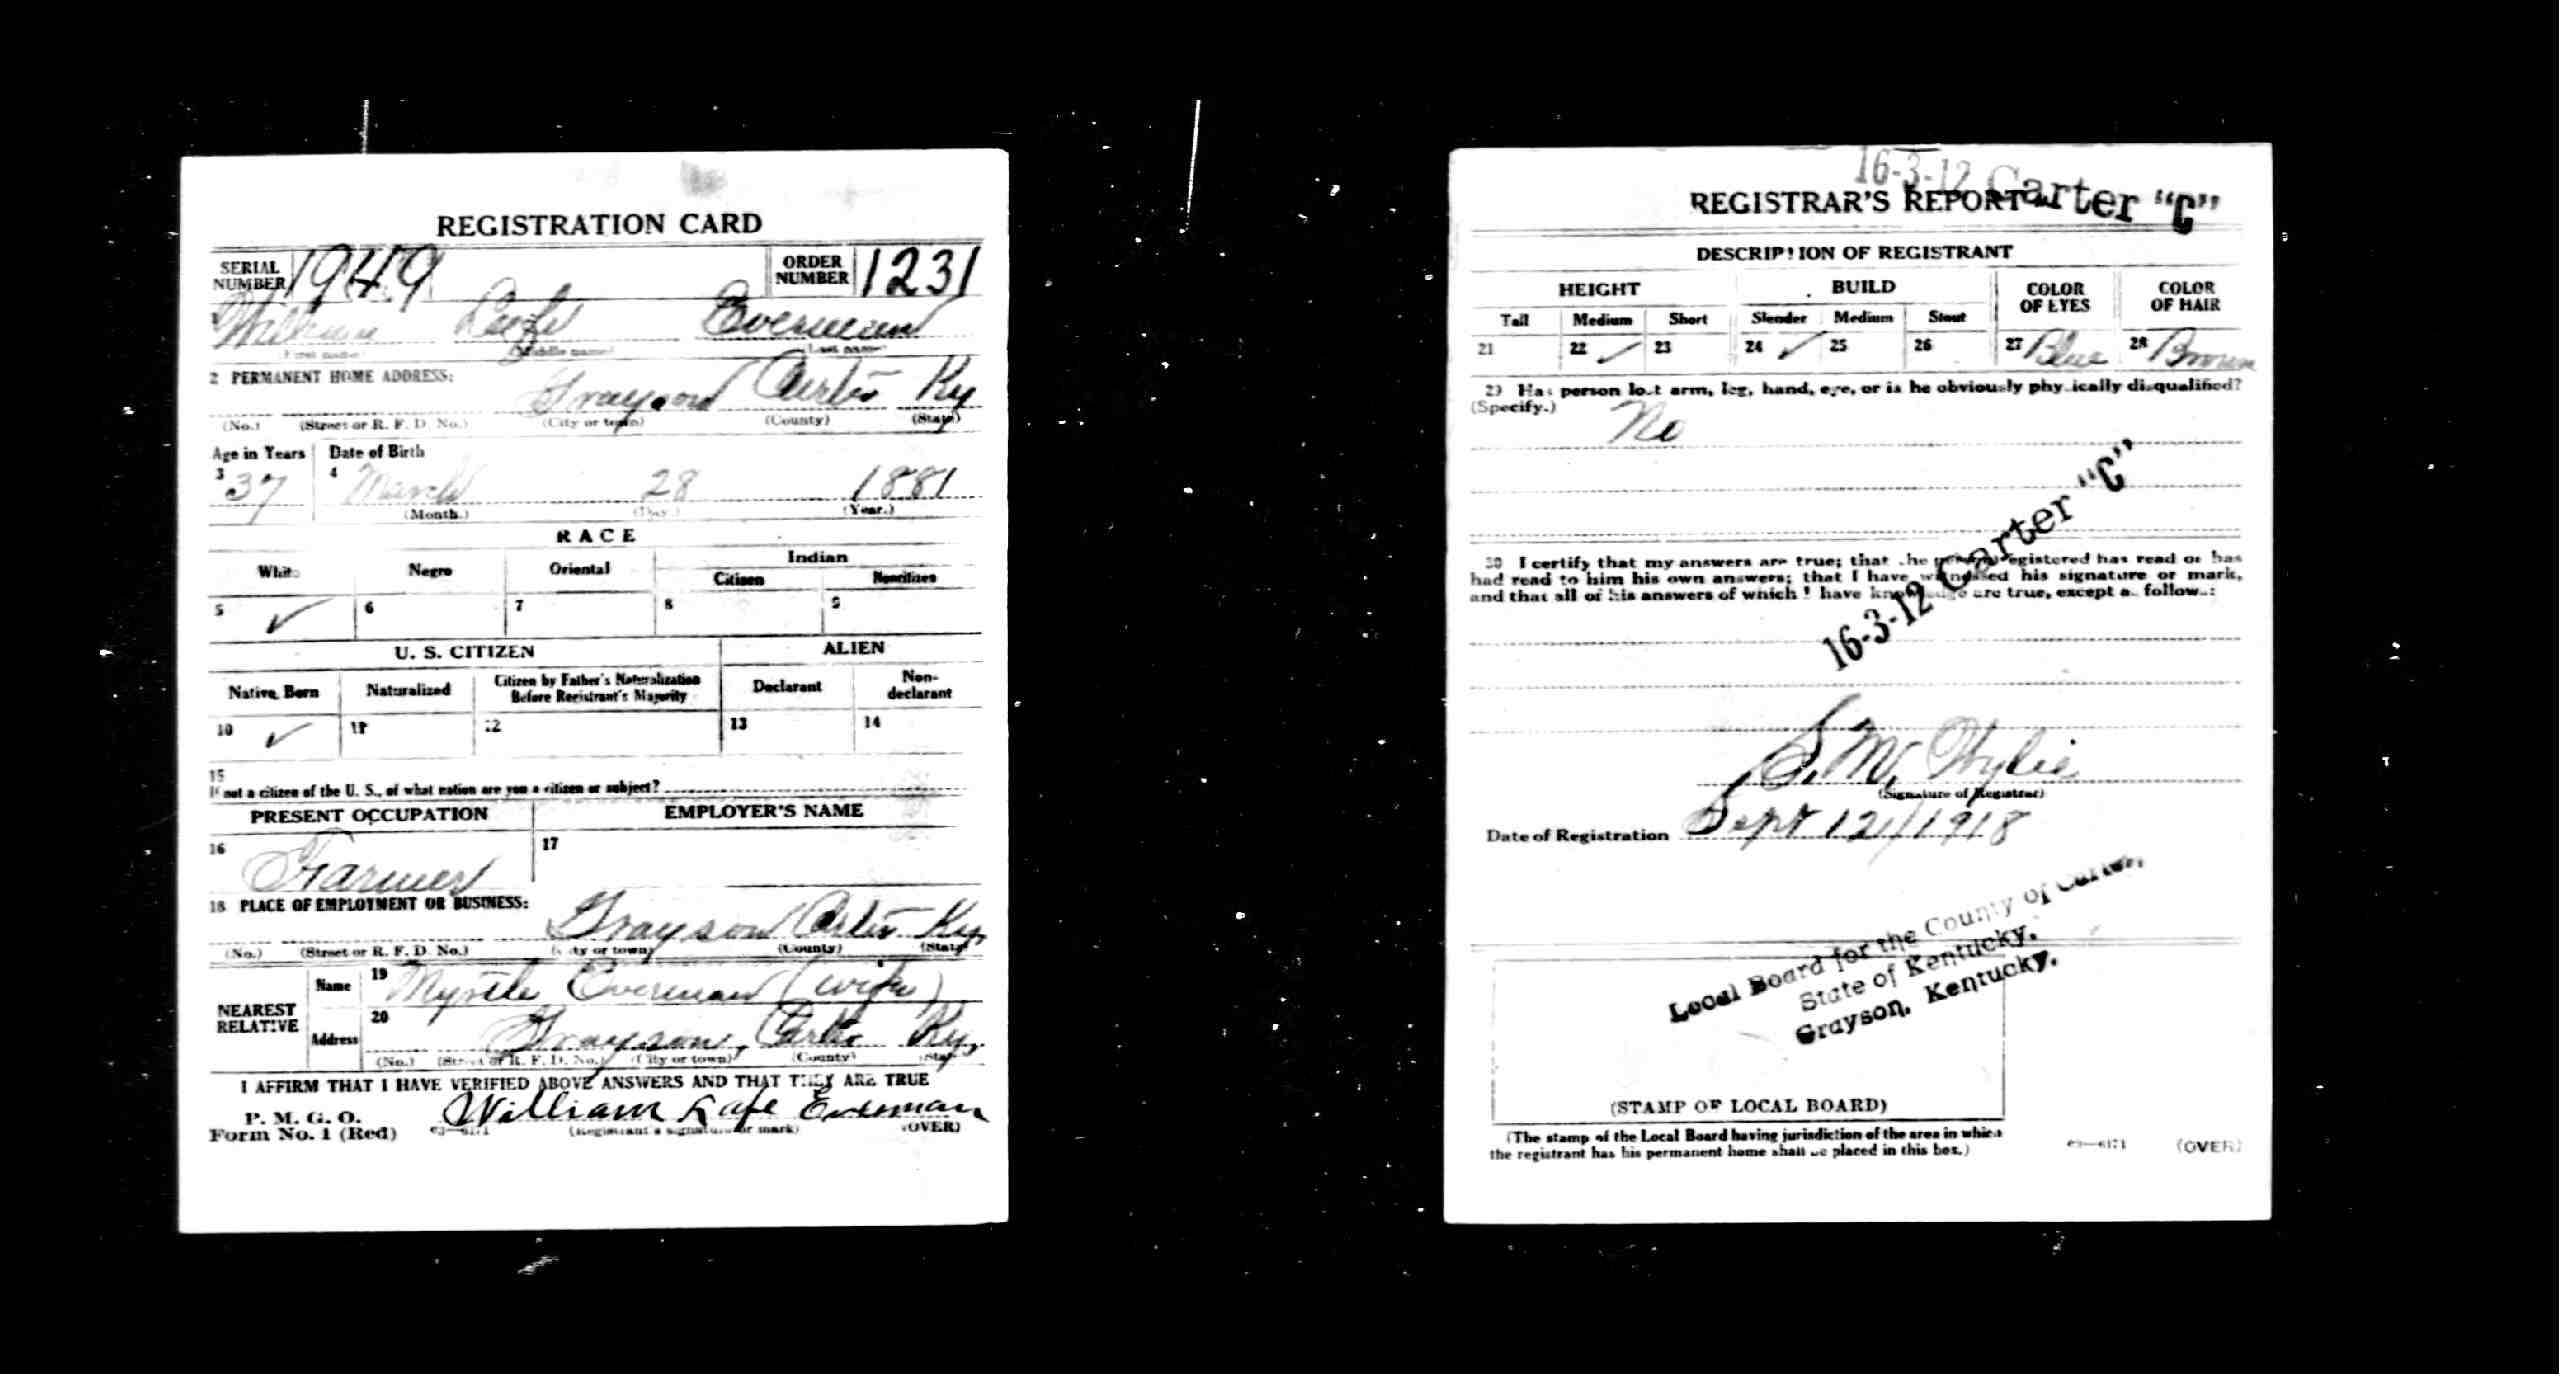 REGISTRATION CARD
SERIAL NUMBER 1949 ORDER NUMBER 1231
1 William Lafe Everman
(First name) (Middle name) (Last name)
2 PERMANENT HOME ADDRESS:
Grayson Carter Ky
(No.) (Street or R. F. D. No.) (City or town) (County) (State)
Age in Years Date of Birth
3 37 4 March 28 1881
(Month.) (Day.) (Year.)
RACE
White Negro Oriental Indian
Citizen Noncitizen
5 ✓ 6 7 8 9
U. S. CITIZEN ALIEN
Native Born Naturalized Citizen by Father's Naturalization Before Registrant's Majority Declarant Non-declarant
10 ✓ 11 12 13 14
15
If not a citizen of the U. S., of what nation are you a citizen or subject?
PRESENT OCCUPATION EMPLOYER'S NAME
16 Farmer 17
18 PLACE OF EMPLOYMENT OR BUSINESS:
Grayson Carter Ky
(No.) (Street or R. F. D. No.) (City or town) (County) (State)
NEAREST RELATIVE
Name 19 Myrtle Everman (wife)
Address 20 Grayson, Carter Ky,
(No.) (Street or R. F. D. No.) (City or town) (County) (State)
I AFFIRM THAT I HAVE VERIFIED ABOVE ANSWERS AND THAT THEY ARE TRUE
P. M. G. O.
Form No. 1 (Red) William Lafe Everman
03—6171 (Registrant's signature or mark) (OVER)
16-3-12 Carter "C"
REGISTRAR'S REPORT
DESCRIPTION OF REGISTRANT
HEIGHT BUILD COLOR OF EYES COLOR OF HAIR
Tall Medium Short Slender Medium Stout
21 22 ✓ 23 24 ✓ 25 26 27 Blue 28 Brown
29 Has person lost arm, leg, hand, eye, or is he obviously physically disqualified?
(Specify.) No
30 I certify that my answers are true; that the person registered has read or has
had read to him his own answers; that I have witnessed his signature or mark,
and that all of his answers of which I have knowledge are true, except as follows:
16-3-12 Carter "C"
S. M. Wylie
(Signature of Registrar)
Date of Registration Sept 12/1918
Local Board for the County of Carter,
State of Kentucky.
Grayson, Kentucky.
(STAMP OF LOCAL BOARD)
(The stamp of the Local Board having jurisdiction of the area in which
the registrant has his permanent home shall be placed in this box.)
03—6171 (OVER)